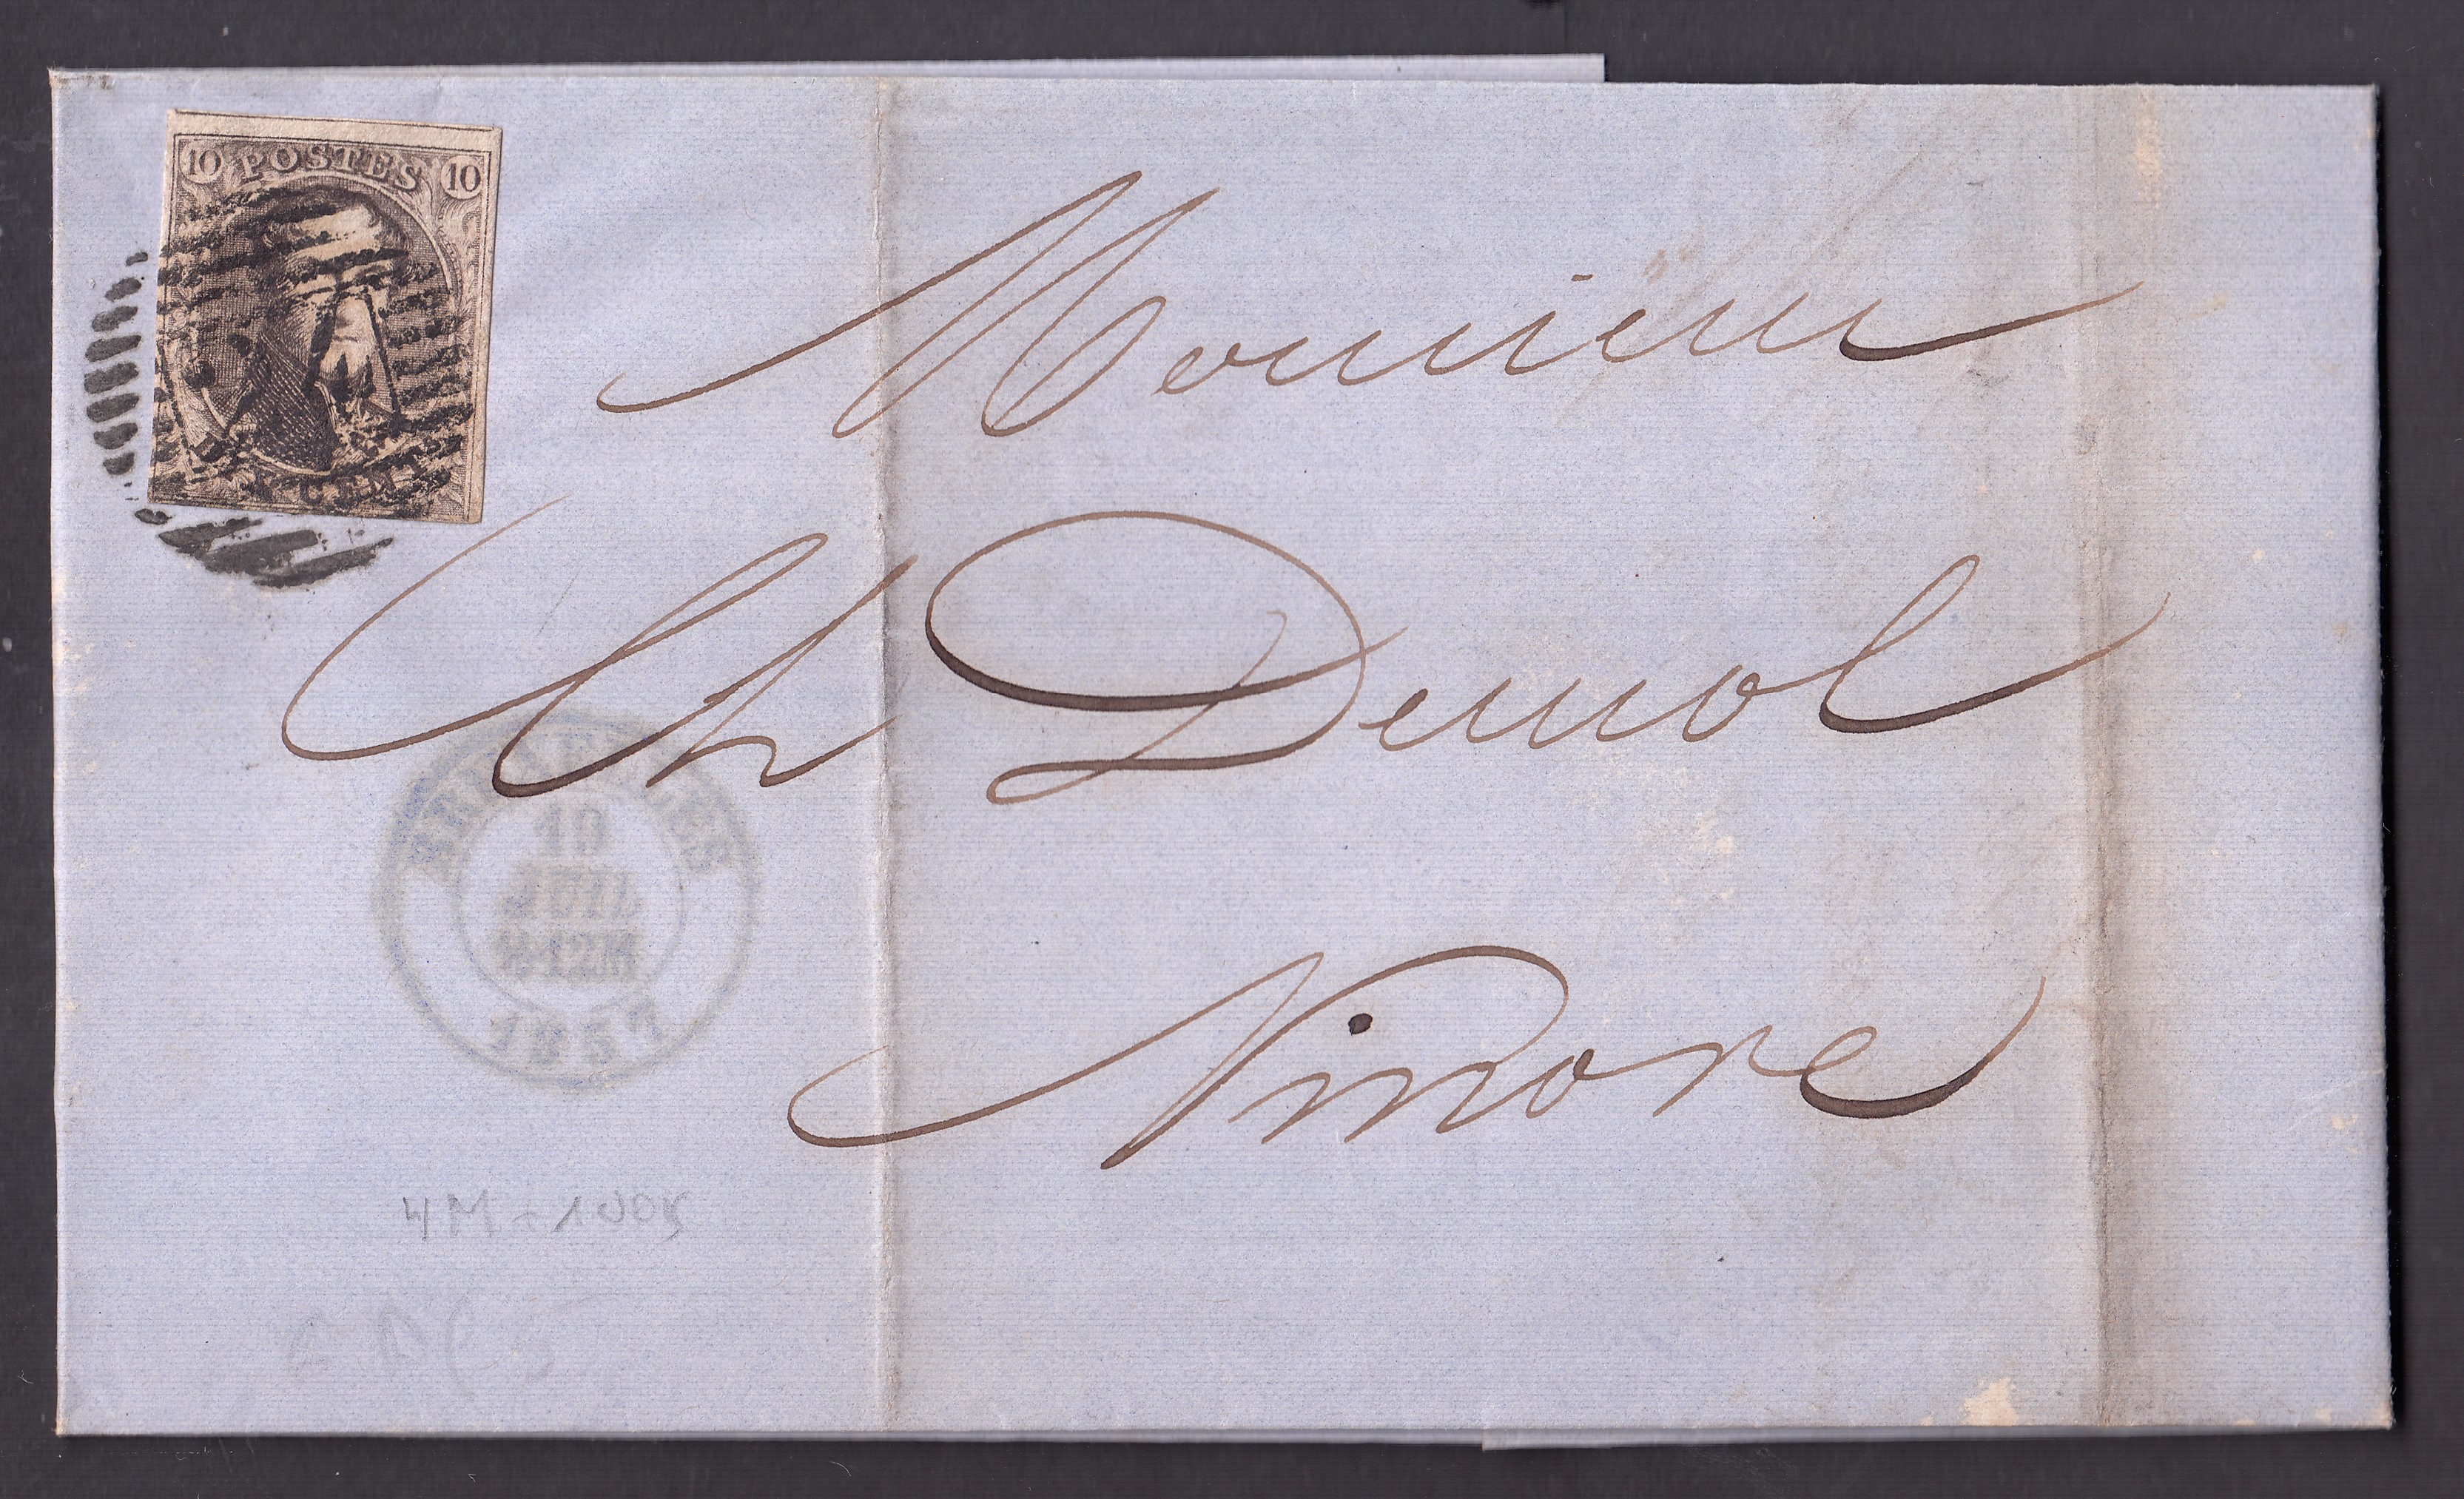 10 POSTES 10
CENT
Monsieur
Ch Demol
Ninove
BRUXELLES
19
JUIL
1857
4M + 100K